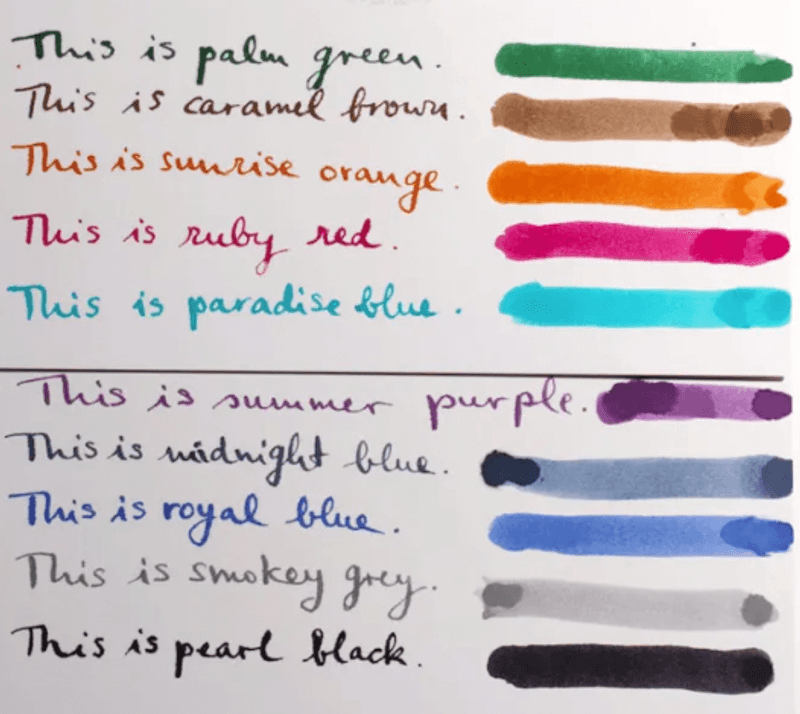 This is palm green.
This is caramel brown.
This is sunrise orange.
This is ruby red.
This is paradise blue.
This is summer purple.
This is midnight blue.
This is royal blue.
This is smokey grey.
This is pearl black.